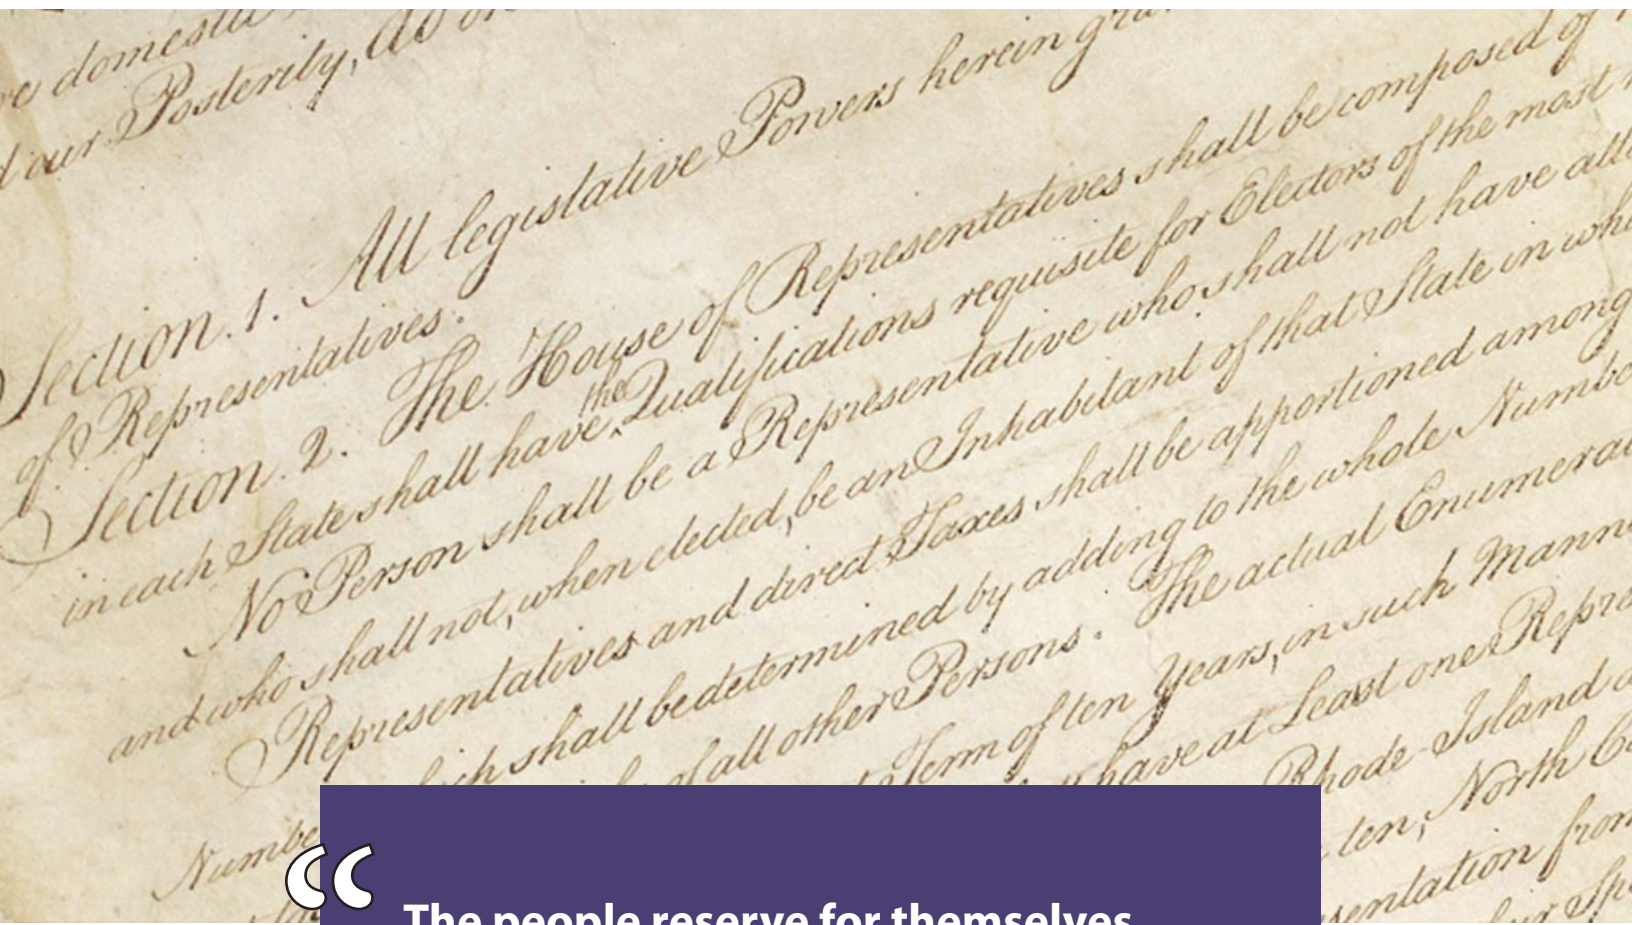 domestic
our Posterity, do
Section. 1. All legislative Powers herein
of Representatives.
Section. 2. The House of Representatives shall be composed of
in each State shall have the Qualifications requisite for Electors of the most
No Person shall be a Representative who shall not have
and who shall not, when elected, be an Inhabitant of that State in
Representatives and direct Taxes shall be apportioned among
shall be determined by adding to the whole
of all other Persons. The actual
Term of ten Years, in such
have at Least one
Rhode-Island
ten, North
from
“
The people reserve for themselves